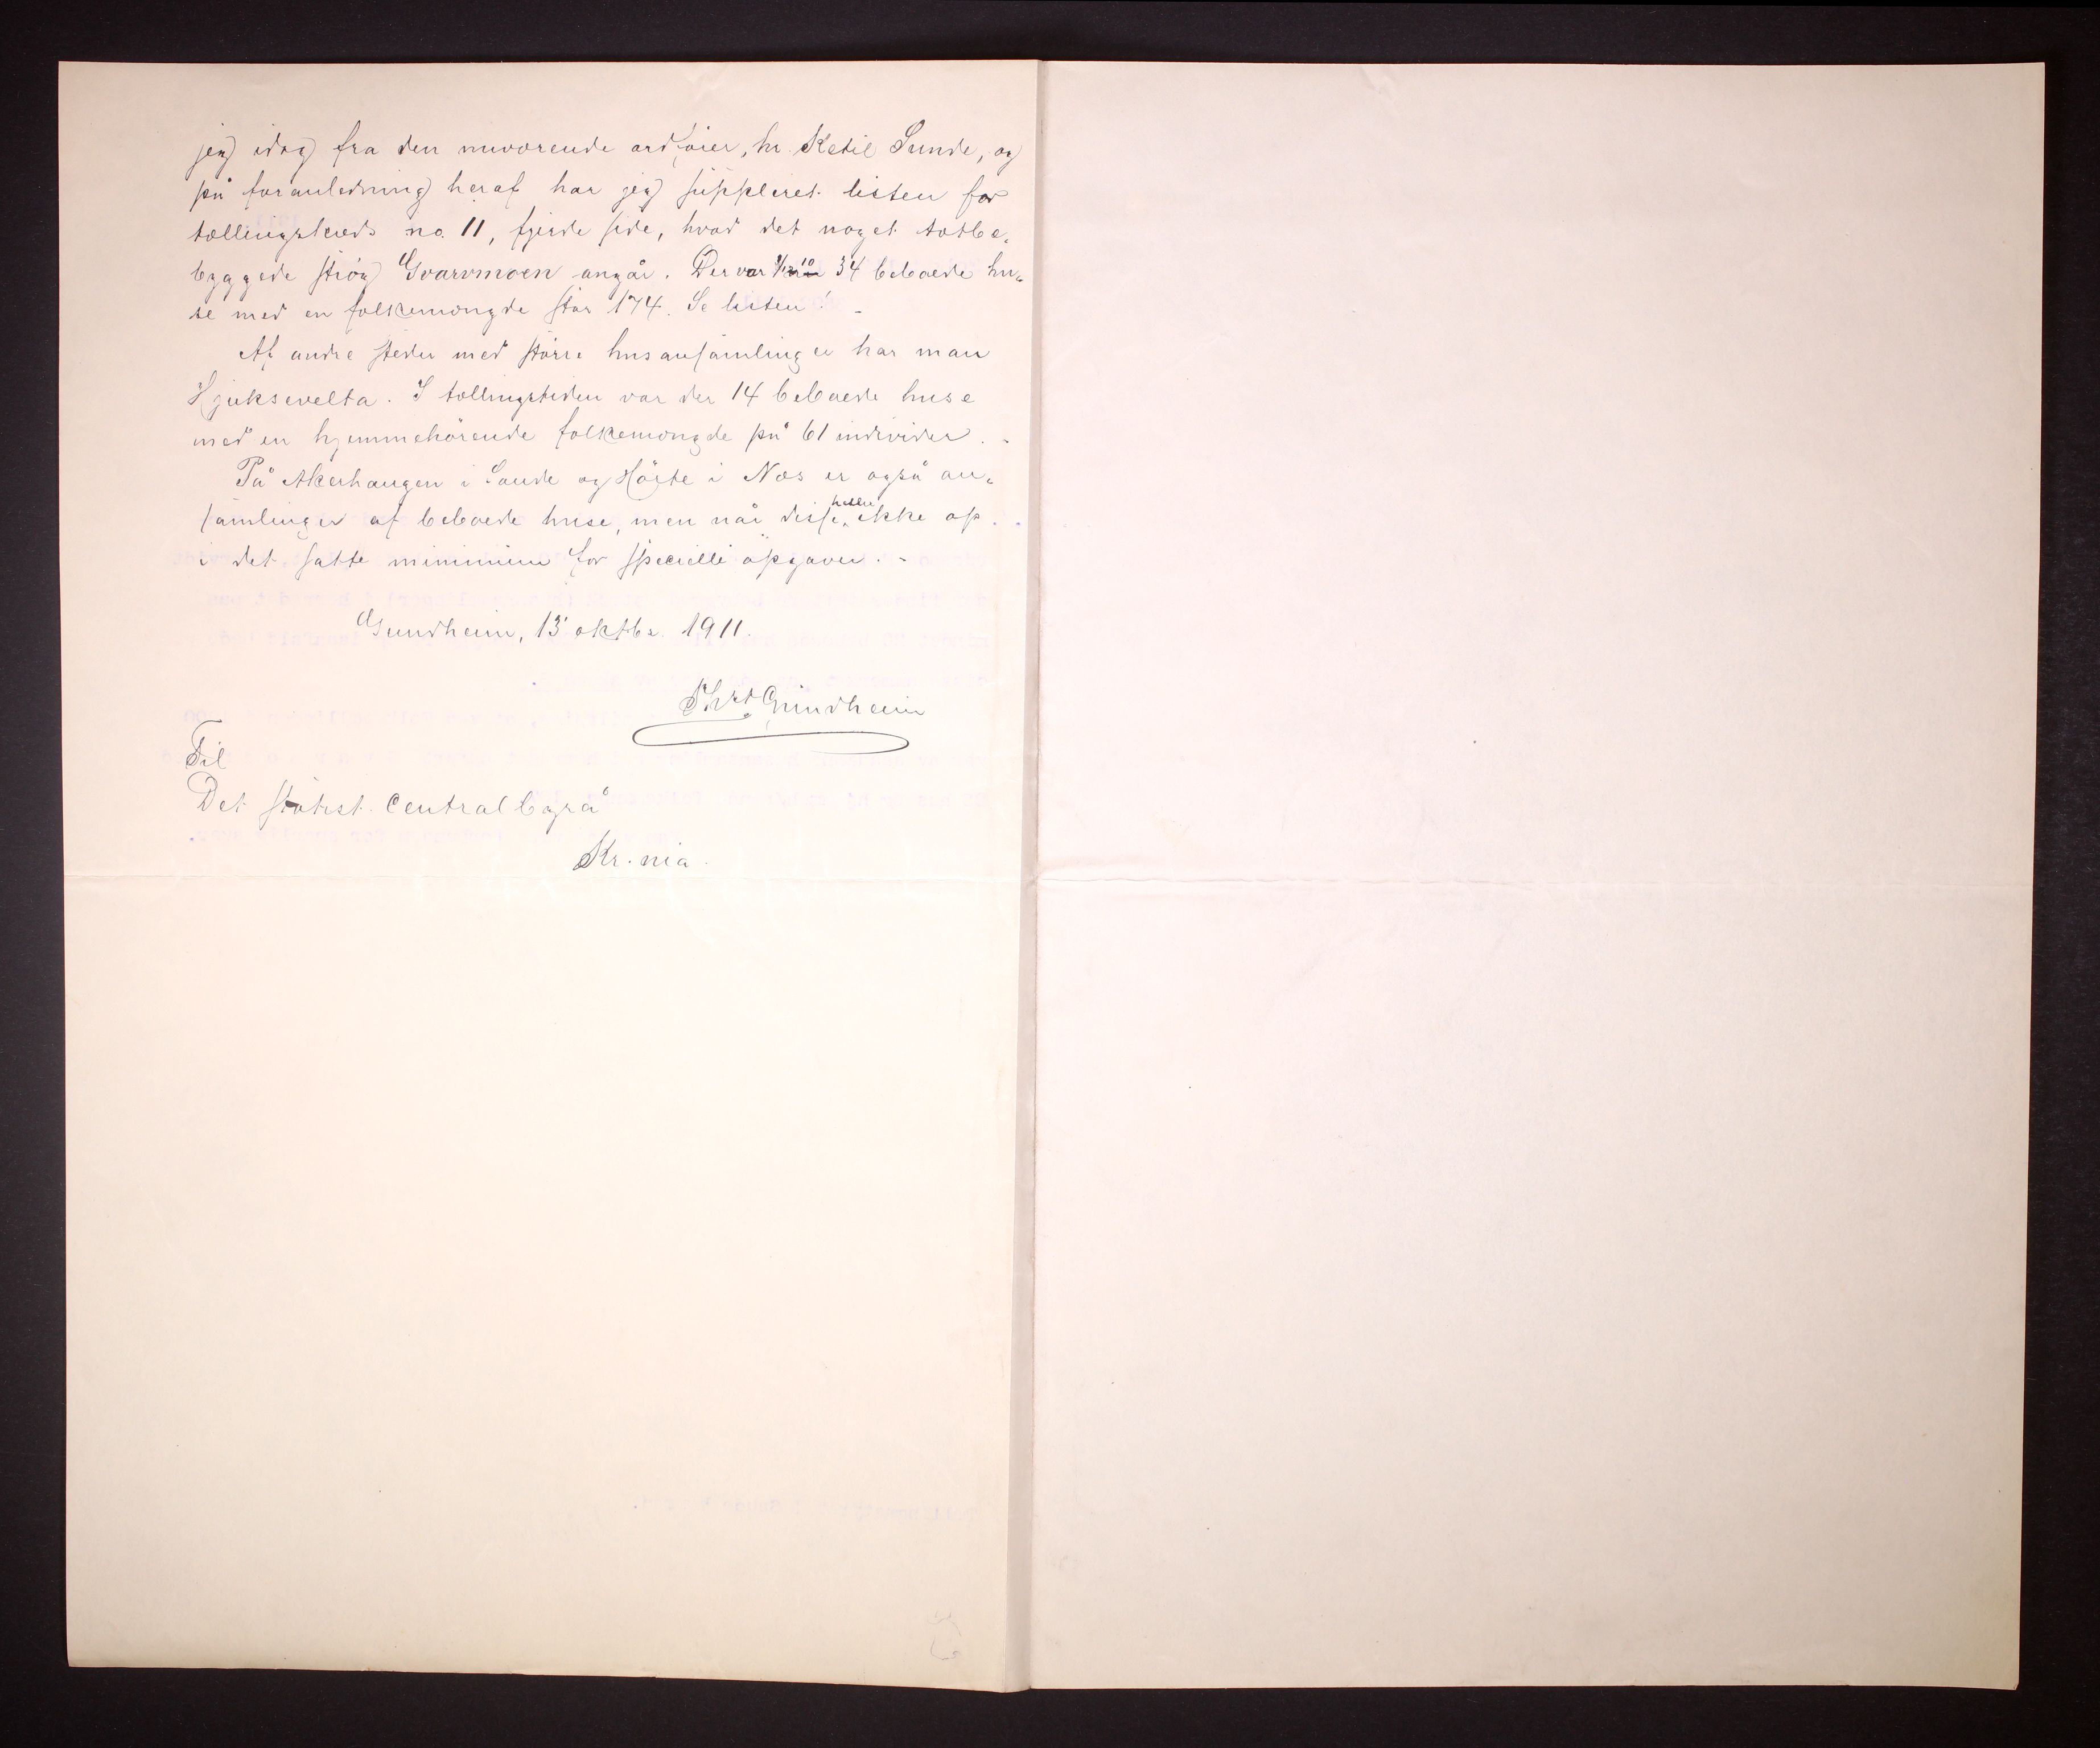 jeg idag fra den nuværende ordfører, hr. Ketil Sunde, og
på foranledning heraf har jeg suppleret listen for
tællingskreds no. 11, fjerde side, hvad det noget tætbe-
byggede strøg Gvarvmoen angår. Der var 1/12 10 34 beboede hu-
se med en folkemængde stor 174. Se listen! -
Af andre steder med større husansamlinger har man
Hjuksevelta. I tællingstiden var der 14 beboede huse
med en hjemmehörende folkemængde på 61 individer. -
På Akerhaugen i Saude og Hörte i Nes er også an-
samlinger af beboede huse, men når disse heller ikke op
i det satte minimum for specielle opgaver. -
Grundheim, 13 oktbr. 1911.
Grundheim
Til
Det statist. Centralbyrå
Kr.nia.